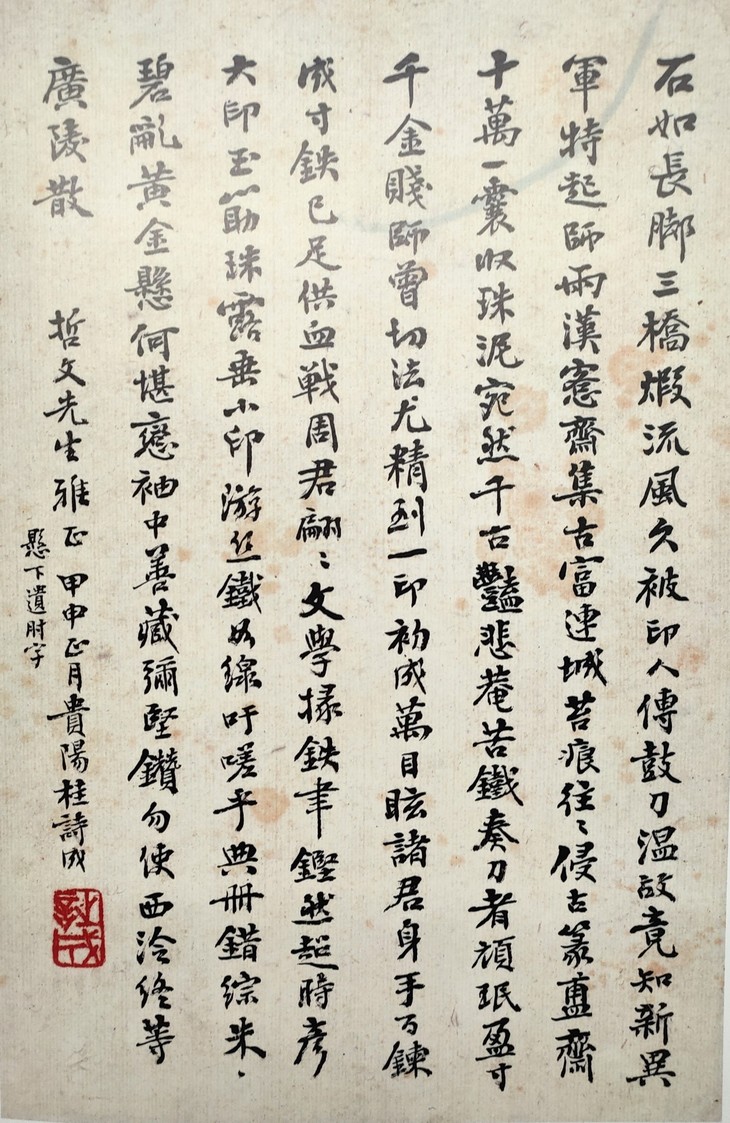 石如長腳三橋煆流風久被印人傳鼓刀溫故竟知新異
軍特起師兩漢愙齋集古富連城苔痕往〻侵古篆簠齋
十萬一囊收珠泥宛然千古豔悲菴苦鐵奏刀者頑珉盈寸
千金賤師曾切法尤精到一印初成萬目眩諸君身手百鍊
成寸鉄已足供血戰周君翩〻文學掾鉄聿鏗然超時彥
大印玉筯珠露垂小印游絲鐵如線吁嗟乎典冊錯綜朱〻
碧亂黃金懸何堪戀袖中善藏彌堅鑽勿使西泠終等
廣陵散
哲文先生雅正 甲申正月貴陽桂詩成
懸下遺肘字
詩成